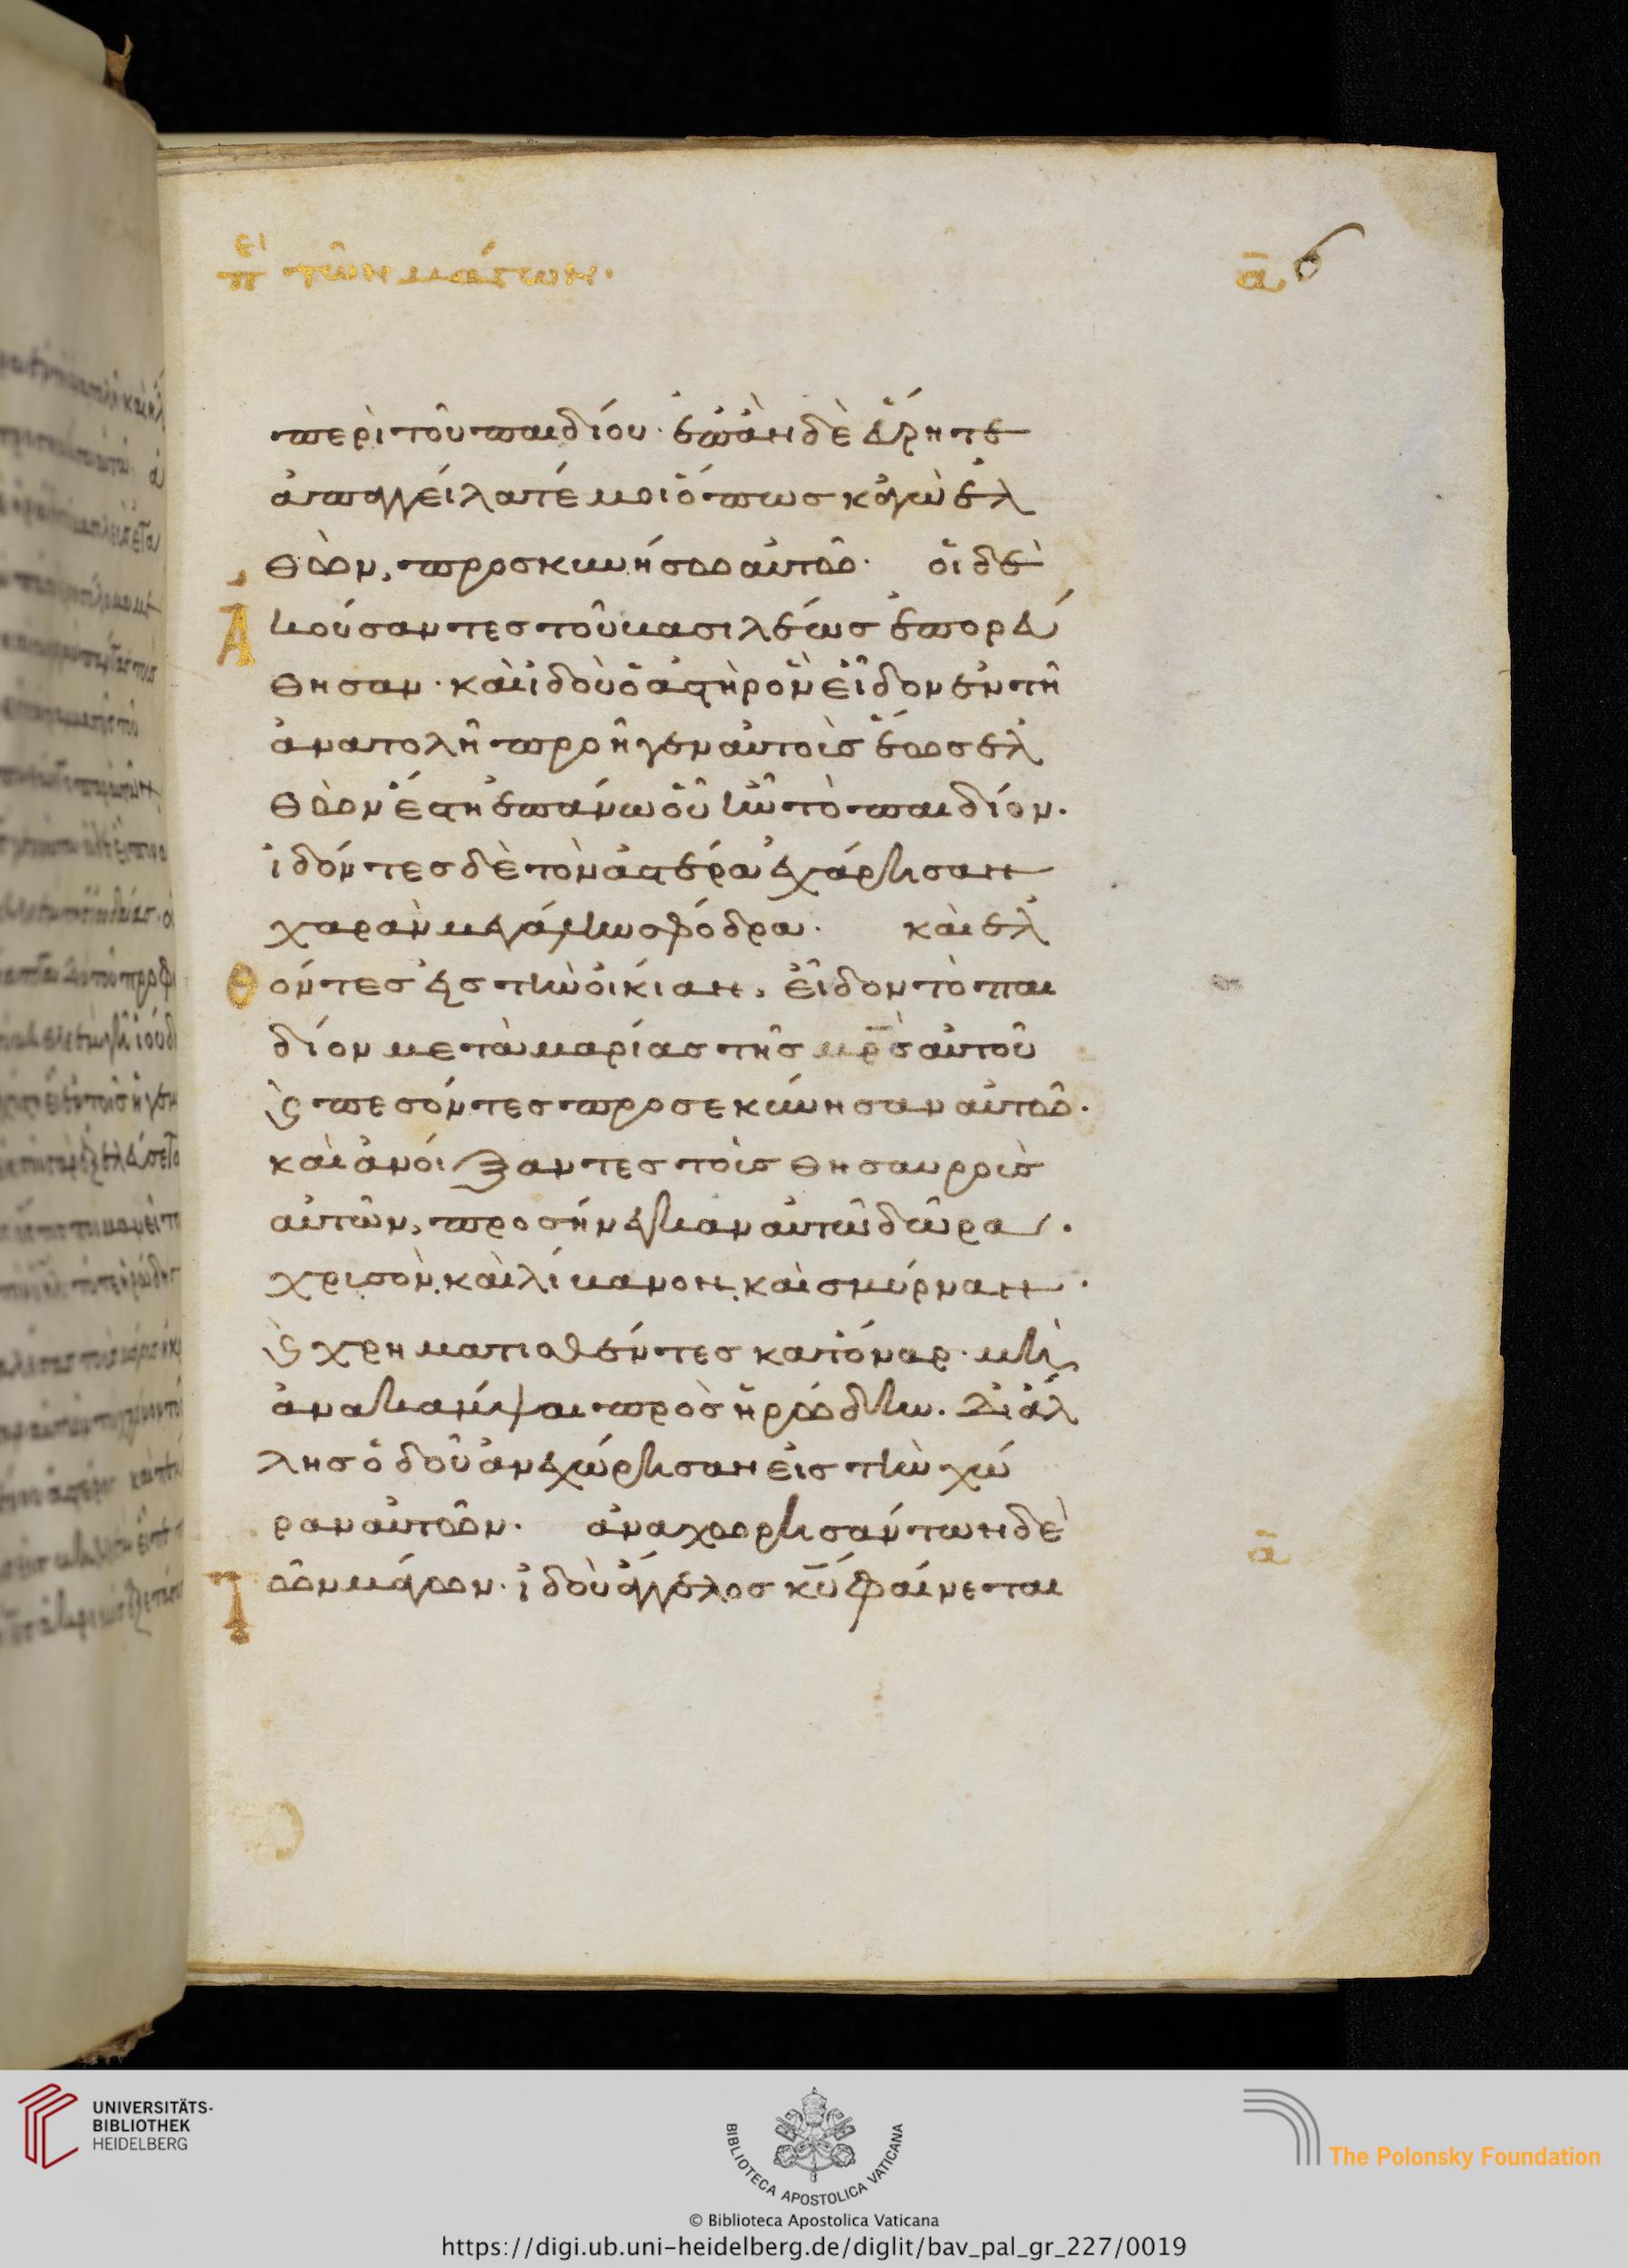 πει τῶν μάγων. ᾱ 6
περὶ τοῦ παιδίου· ἐπὰν δὲ εὕρητε
ἀπαγγείλατέ μοι ὅπως κἀγὼ ἐλ
θὼν, προσκυνήσω αὐτῶ· οἱ δὲ
Ἀκούσαντες τοῦ βασιλέως ἐπορεύ
θησαν· καὶ ἰδοὺ ὁ ἀστὴρ ὃν εἶδον ἐν τῆ
ἀνατολῆ προῆγεν αὐτοὺς ἕως ἐλ
θὼν ἔστη ἐπάνω οὗ ἦν τὸ παιδίον.
ἰδόντες δὲ τὸν ἀστέρα ἐχάρησαν
χαρὰν μεγάλην σφόδρα. καὶ ἐλ
Θόντες εἰς τὴν οἰκίαν, εἶδον τὸ παι
δίον μετὰ μαρίας τῆς μρ̅ς αὐτοῦ
ϗ πεσόντες προσεκύνησαν αὐτῶ·
καὶ ἀνοίξαντες τοὺς θησαυροὺς
αὐτῶν, προσήνεγκαν αὐτῶ δῶρα.
χρυσὸν, καὶ λίβανον, καὶ σμύρναν·
ϗ χρηματισθέντες κατόναρ· μὴ
ἀνακάμψαι πρὸς ἡρώδην. δι ἄλ
λης ὁδοῦ ἀνεχώρησαν εἰς τὴν χώ
ραν αὐτῶν. ἀναχωρησάντων δὲ
Τῶν μάγων· ἰδοὺ ἄγγελος κ̅υ̅ φαίνεται
ᾱ
UNIVERSITÄTS-
BIBLIOTHEK
HEIDELBERG
BIBLIOTECA APOSTOLICA VATICANA
The Polonsky Foundation
© Biblioteca Apostolica Vaticana
https://digi.ub.uni-heidelberg.de/diglit/bav_pal_gr_227/0019